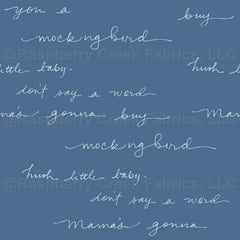 you a buy
mockngbird
@Raspberry Creek Fabrics, LLC
little baby. hush
don't say a word
Mama's gonna buy Mama's
mockngbird
hush little baby.
@Raspberry Creek Fabrics, LLC
don't say a word
Mama's gonna